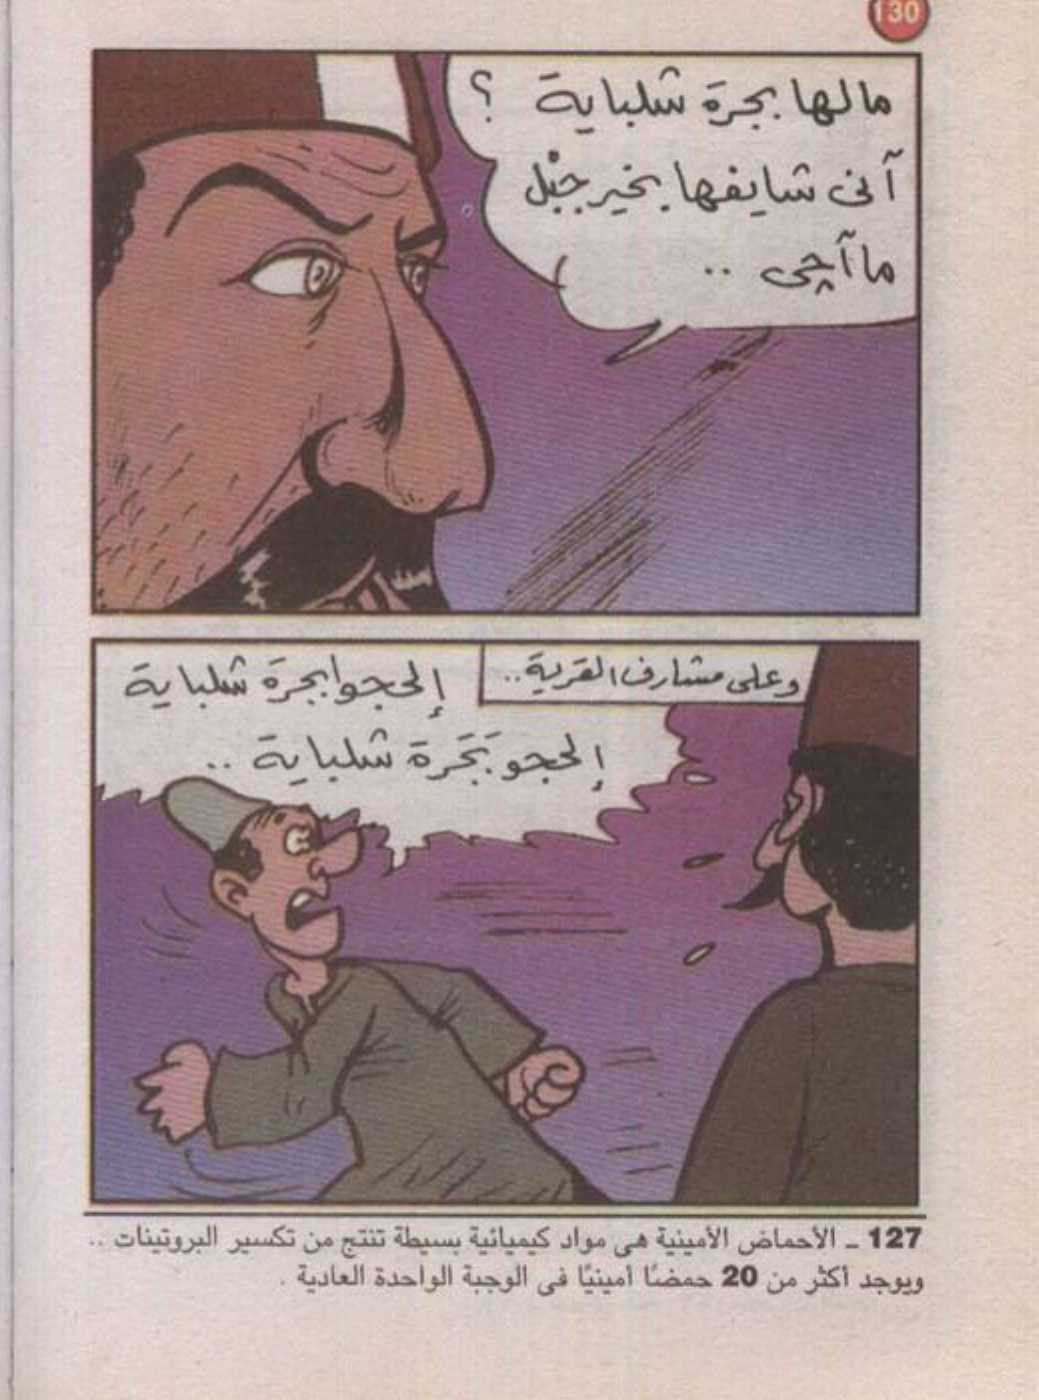 130
مالها بجرة شلباية ؟
آنى شايفها بخير جبْل
ما آچى ..
وعلى مشارف القرية..
إلحجوا بجرة شلباية
إلحجو بَجَرة شلباية ..
127 ـ الأحماض الأمينية هى مواد كيميائية بسيطة تنتج من تكسير البروتينات ..
ويوجد أكثر من 20 حمضًا أمينيًا فى الوجبة الواحدة العادية .